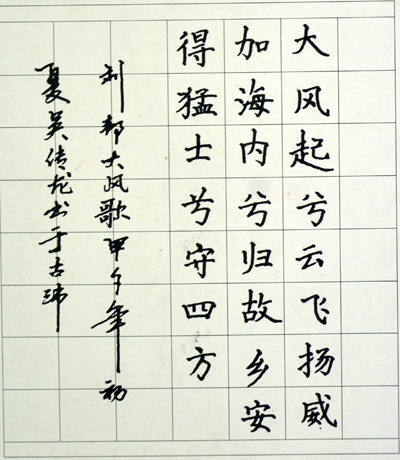 大风起兮云飞扬威
加海内兮归故乡安
得猛士兮守四方
刘邦大风歌甲午年初
夏吴传龙书于古